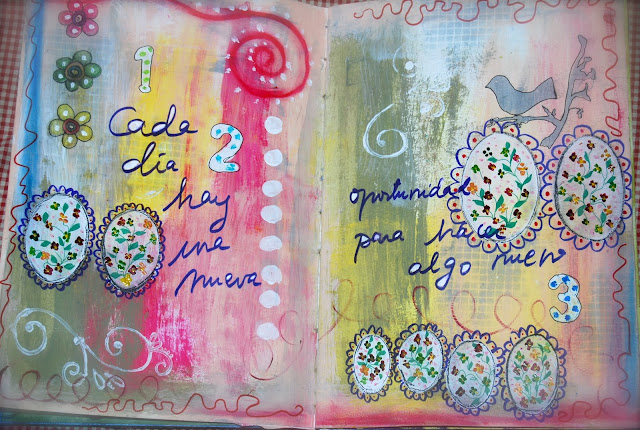 1
Cada
día
2
hay
una
nueva
oportunidad
para hacer
algo nuevo
3